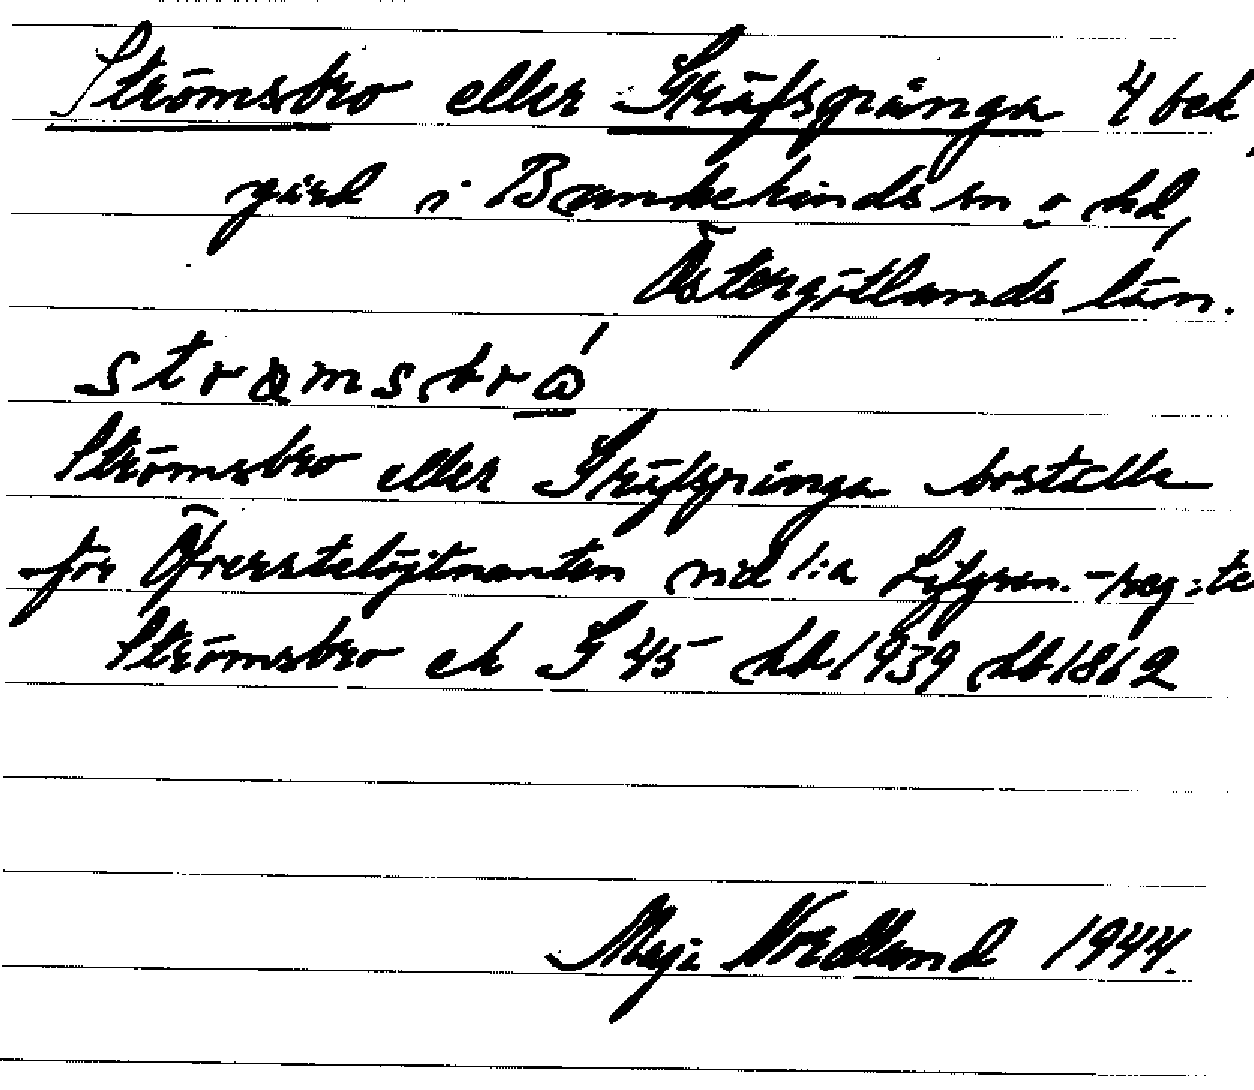 Strömsbro eller Gräfspånga 4 bek,
gård i Bankekinds sn o hd,
Östergötlands län.
strømsbró
Strömsbro eller Gräfspånga boställe
för Öfverstelöjtnanten vid 1:a Lifgren.-reg:te
Strömsbro ek G 45 hb 1939 hb 1862
Maja Nordlund 1944.